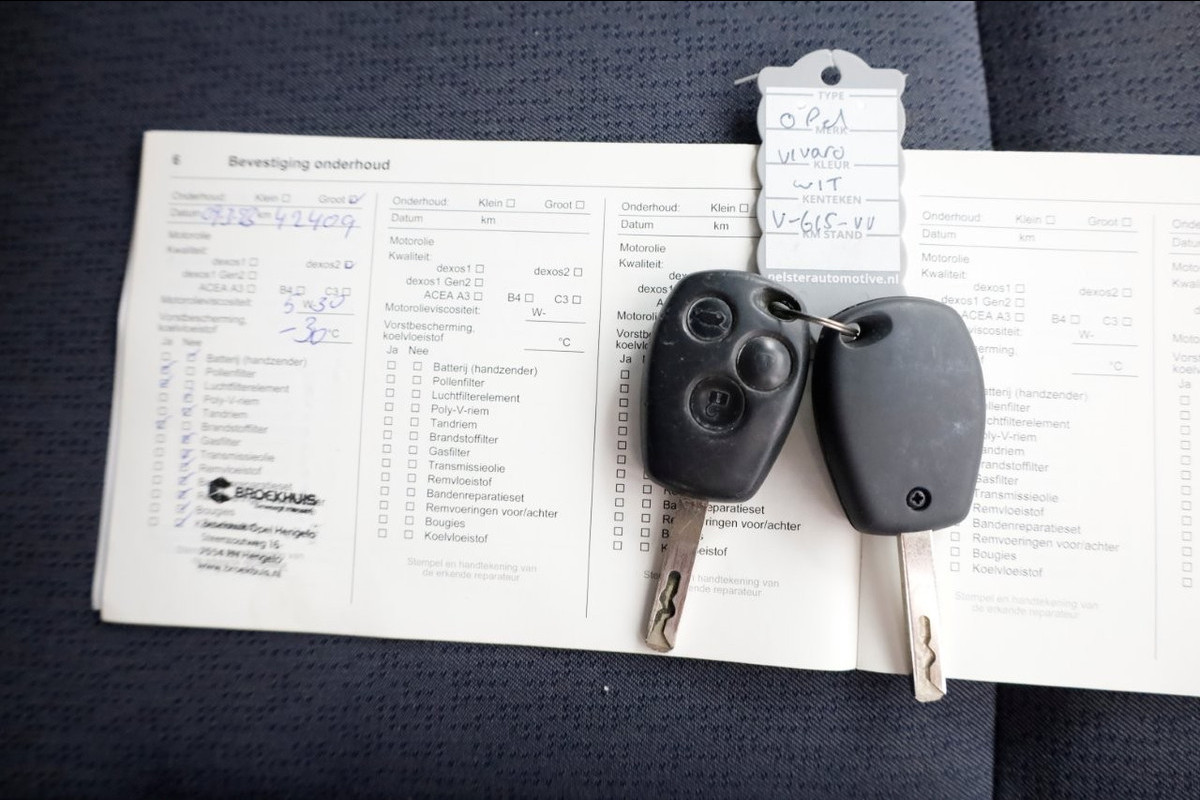 6 Bevestiging onderhoud
Onderhoud: Klein Groot
Datum km 42409
Motorolie
Kwaliteit:
dexos1 dexos2
dexos1 Gen2
ACEA A3 B4 C3
Motorolieviscositeit:
5 W- 30
Vorstbescherming,
koelvloeistof -30 °C
Ja Nee
Batterij (handzender)
Pollenfilter
Luchtfilterelement
Poly-V-riem
Tandriem
Brandstoffilter
Gasfilter
Transmissieolie
Remvloeistof
Bougies
BROEKHUIS
Broekhuis Opel Hengelo
www.broekhuis.nl
Onderhoud: Klein Groot
Datum km
Motorolie
Kwaliteit:
dexos1 dexos2
dexos1 Gen2
ACEA A3 B4 C3
Motorolieviscositeit:
W-
Vorstbescherming,
koelvloeistof °C
Ja Nee
Batterij (handzender)
Pollenfilter
Luchtfilterelement
Poly-V-riem
Tandriem
Brandstoffilter
Gasfilter
Transmissieolie
Remvloeistof
Bandenreparatieset
Remvoeringen voor/achter
Bougies
Koelvloeistof
Stempel en handtekening van
de erkende reparateur
Onderhoud: Klein
Datum km
Motorolie
Kwaliteit:
Ja
voor/achter
en handtekening van
reparateur
TYPE
Opel
MERK
Vivaro
KLEUR
WIT
KENTEKEN
V-615-VV
KM STAND
pelsterautomotive.nl
Onderhoud: Klein Groot
Datum km
Motorolie
Kwaliteit:
dexos1 dexos2
dexos1 Gen2
ACEA A3 B4 C3
W-
°C
(handzender)
Transmissieolie
Remvloeistof
Bandenreparatieset
Remvoeringen voor/achter
Bougies
Koelvloeistof
Stempel en handtekening van
de erkende reparateur